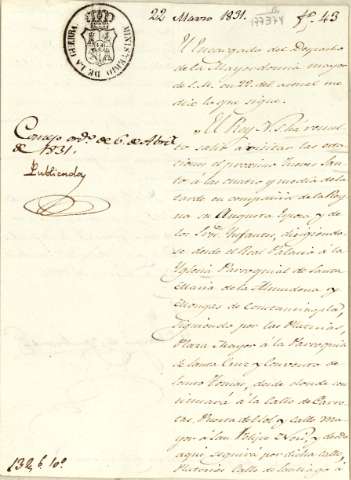 22 Marzo 1831.
fº. 43
177374
MINISTERIO DE LA GUERRA
El Encargado del Despacho
de la Mayordomía mayor
de S.M. en 22 del actual me
dice lo que sigue.
Consejo ordº. de 6. de Abril
de 1831.
Publicada
"El Rey N.S. ha resuelto
salir á visitar las esta
ciones el proximo Jueves San
to á las cuatro y media de la
tarde en compañía de la Rey
na su Augusta Esposa y de
los Srs. Ynfantes, dirigiendo
se desde el Real Palacio á la
Yglesia Parroquial de Santa
Maria de la Almudena y
Monjas de Constantinopla,
siguiendo por las Platerias,
Plaza Mayor á la Parroquia
de Santa Cruz y Convento de
Santo Tomas, desde donde con
tinuará á la Calle de Carre
tas, Puerta del Sol y calle ma
yor á San Felipe Neri, y desde
aqui seguira por dicha calle,
Platerias Calle de Santiago á